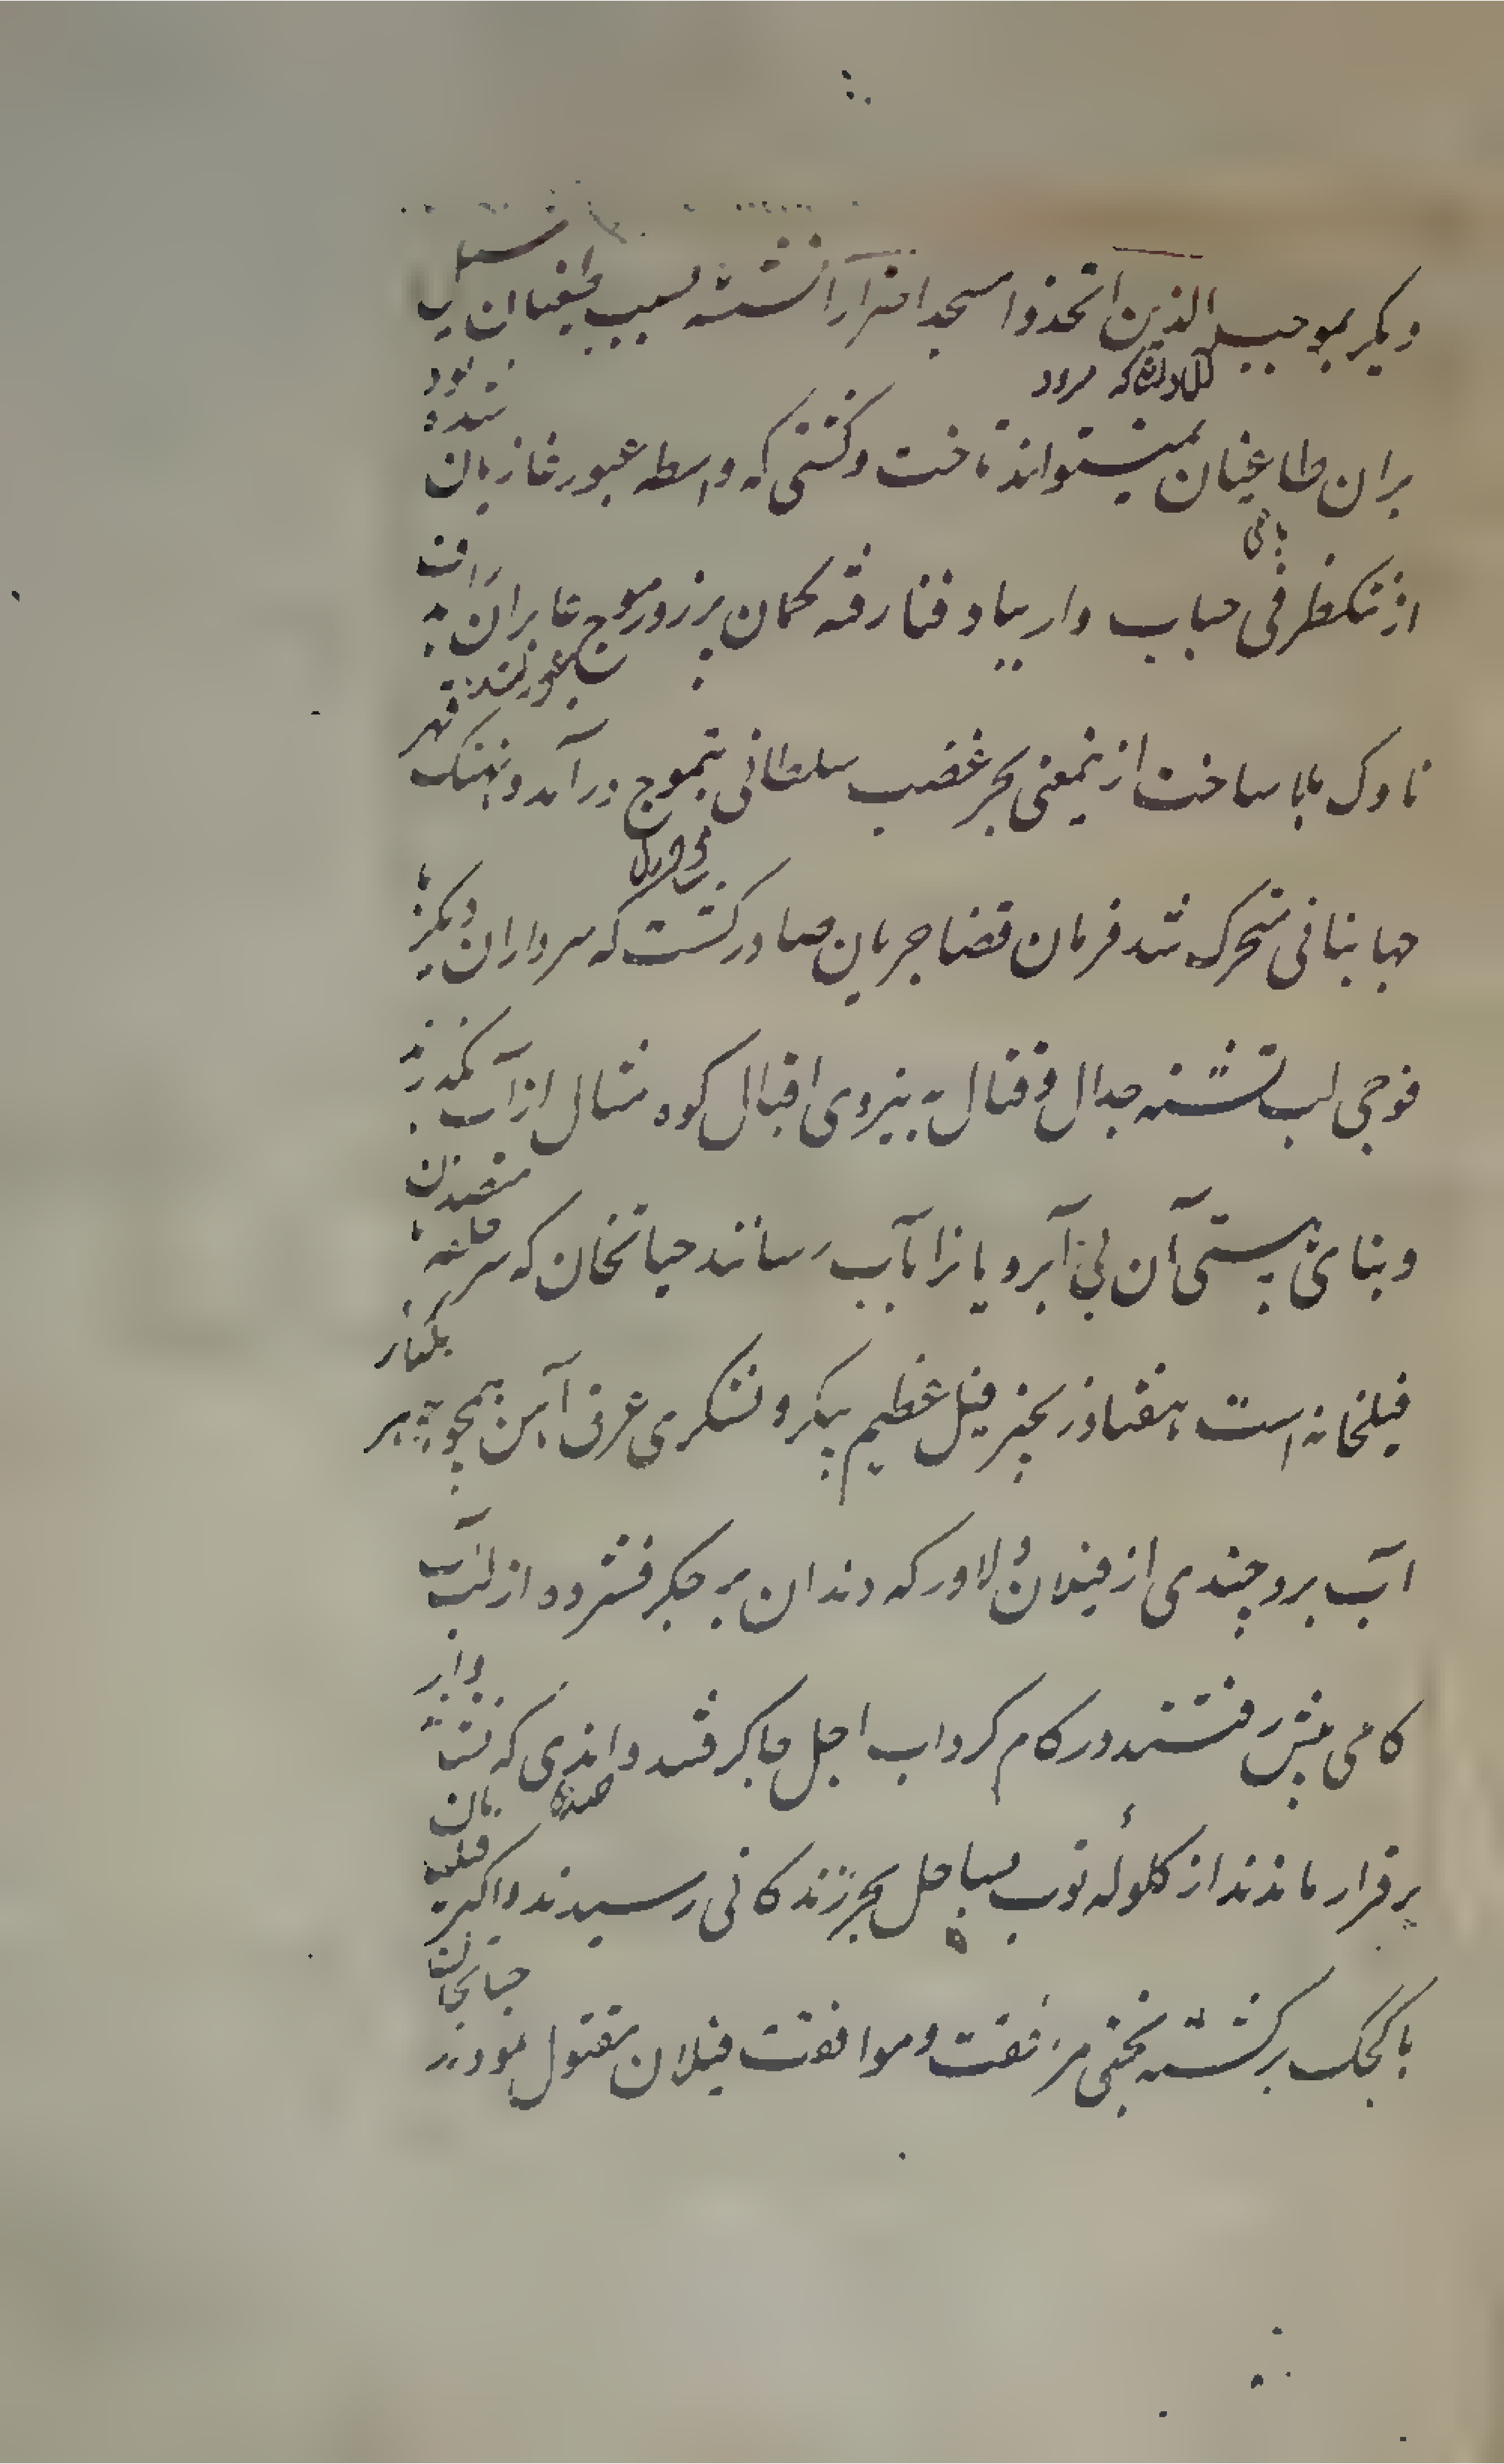 دیگر بموجب الذین اتخذوا مسجدا ضرارا نشسته بسبب طغیان سیل
بران طاغیان نمیتواند تاخت و کشتی که واسطه عبور غازیان شده بود
از تنکظرفی حباب وار بباد فنا رفته کمان پرزور موج عابران را
ناوک بلا ساخت ازینمعنی بحر غضب سلطانی بتموج درآمد و نهنک قهر
جهانبانی متحرک شد فرمان قضا جریان صادر کشت که سرداران دیکر با
فوجی لب تشنه جدال و قتال به نیروی اقبال کوه مثال از آب بگذرند
و بنای هستی آن بی آبرویانرا بآب رسانند حیاتخان که سر حلقه
فیلخانه است هفتاد زنجیر فیل عظیم پیکر و لشکری غرق آهن بکنار
آب برد چندی از فیلان دلاور که دندان بر جکر فشرده از لب آب
کامی پیش رفتند در کام کرداب اجل جا کرفتند و اندی که
برقرار ماندند از کلوله توب بساحل بحر زندکانی رسیدند و اکثر فیلبانان
با کجک برکشته بختی مرافقت و موافقت فیلان مقتول نمودند حیاتخان